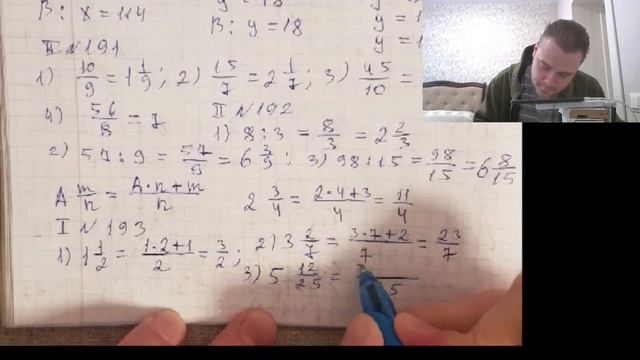 В: x = 114
В: y = 18
II N 191
1) 10/9 = 1 1/9; 2) 15/7 = 2 1/7; 3) 45/10 =
4) 56/8 = 7
II N 192
1) 8:3 = 8/3 = 2 2/3
2) 57:9 = 57/9 = 6 3/9; 3) 98:15 = 98/15 = 6 8/15
A m/n = A·n+m/n
2 3/4 = 2·4+3/4 = 11/4
I N 193
1) 1 1/2 = 1·2+1/2 = 3/2; 2) 3 2/7 = 3·7+2/7 = 23/7
3) 5 12/25 = /5